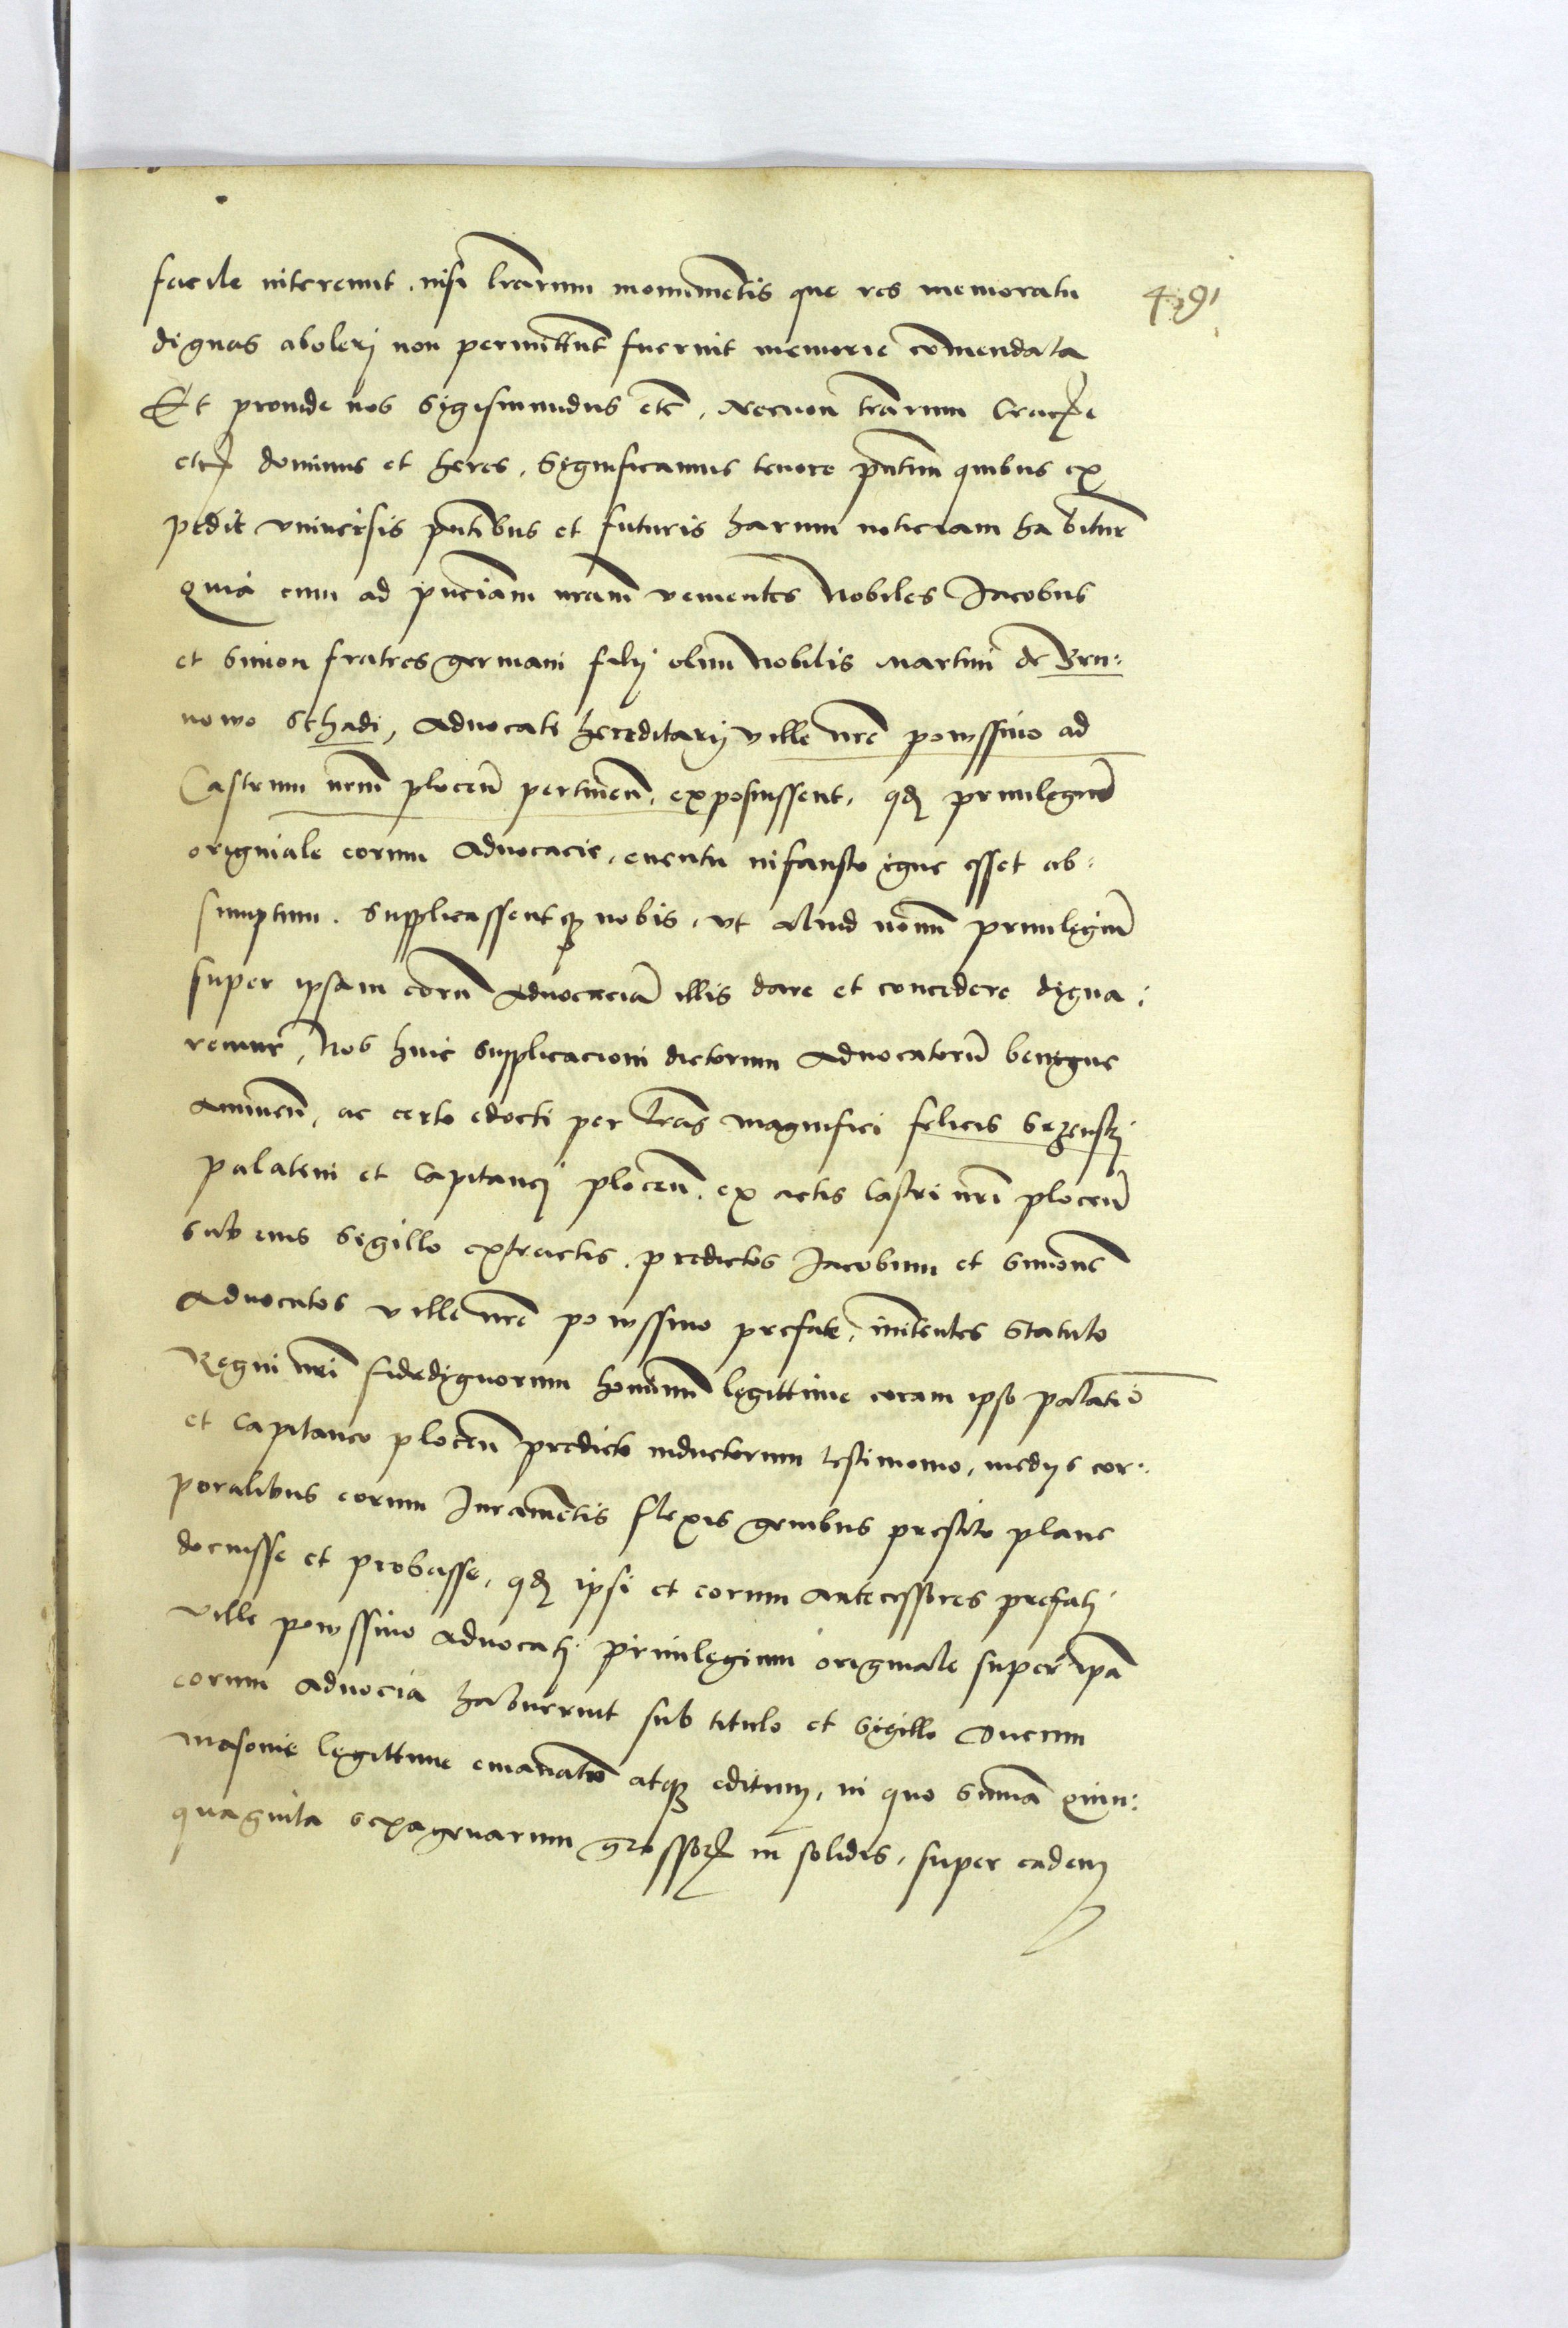 facile intereunt, nisi lrarum monumētis que res memoratu
dignas aboleri non permittūt fuerint memorie cōmendata
Et proinde nos Sigismundus etc̄. Necnon trārum Crac̄e
etc̄ dominus et heres. Significamus tenore pn̄tium quibus ex
pedit vniuersis pn̄tibus et futuris harum noticiam habitur̄
Quia cum ad pn̄ciam nr̄am venientes Nobiles Jacobus
et Simon fratres germani filij olim Nobilis Martini de Bru:
nowo Schadi, Aduocati hereditarij ville nr̄e powssino ad
Castrum nr̄m plocen̄ pertinen̄. exposuissent, qd priuilegiū
originale eorum Aduocacie, euentu infausto igne esset ab:
sumptum. Supplicassentq; nobis, vt aliud nouū priuilegiū
super ipsam eorū Aduocaciā illis dare et concedere digna:
remur, Nos huic supplicacioni dictorum Aduocatorū benigne
Annuen̄, ac certo edocti per lr̄as magnifici felicis Srzenskj
palatini et Capitanei plocen̄. ex actis Castri nr̄i plocen̄
sub eius Sigillo extractis, predictos Jacobum et Simonē
Aduocatos ville nr̄e powssino prefate, innitentes Statuto
Regni nr̄i fidedignorum hominū legittime coram ipso palatīo
et Capitaneo plocen̄ predicto inductorum testimonio, medijs cor:
poralibus eorum Juramētis flexis genibus prestito plane
docuisse et probasse, qd ipsi et eorum antecessores prefatj
ville powssino aduocatj priuilegium originale super ipā
eorum aduocia habuerunt sub titulo et Sigillo Ducum
Masouie legittime emanatū atq; editum, in quo sūmā Quin:
quaginta sexagenarum grossor̄ in solidis, super eadem